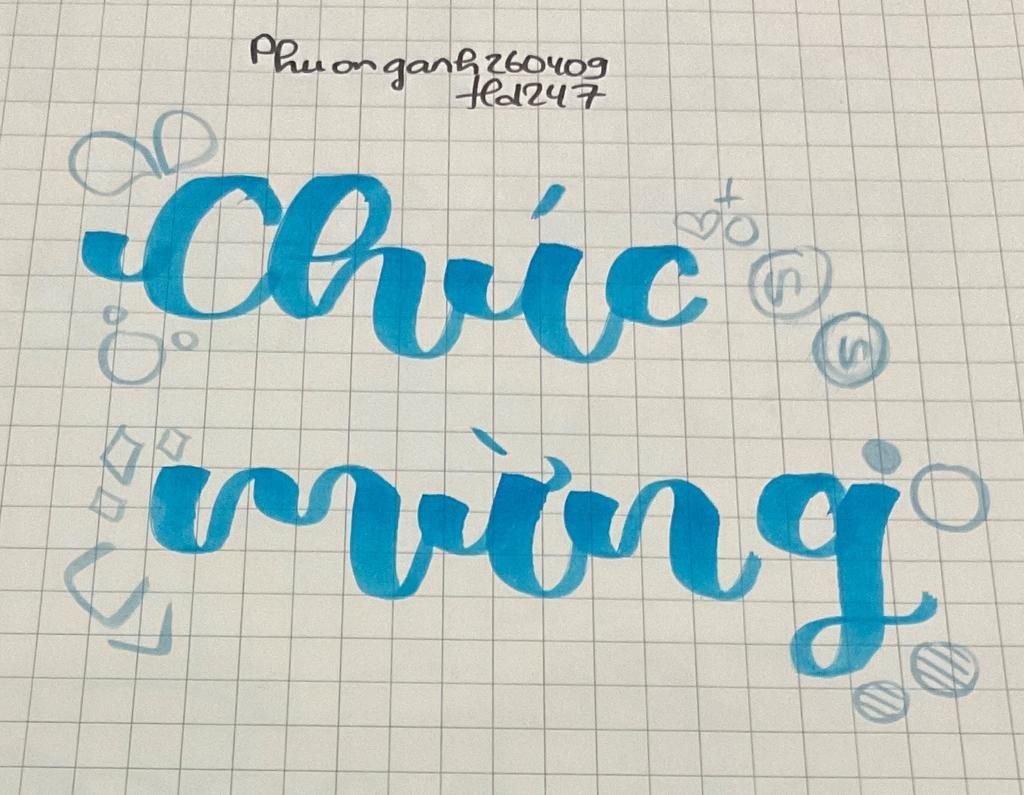 Phuonganh260409
tld247
Chúc
mừng
S
S